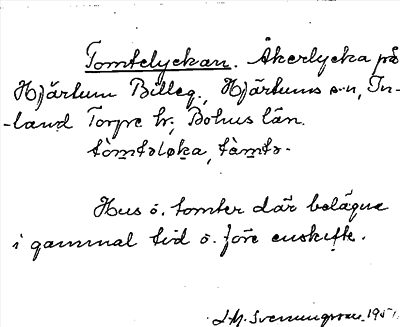 Tomtelyckan. Åkerlycka på
Hjärtum Billeg., Hjärtums s-n, In-
-land Torpe hr, Bohus län.
tòmtəløka, tòmtə-
Hus o. tomter där belägna
i gammal tid o. före enskifte.
J.M. Svenungsson 1951